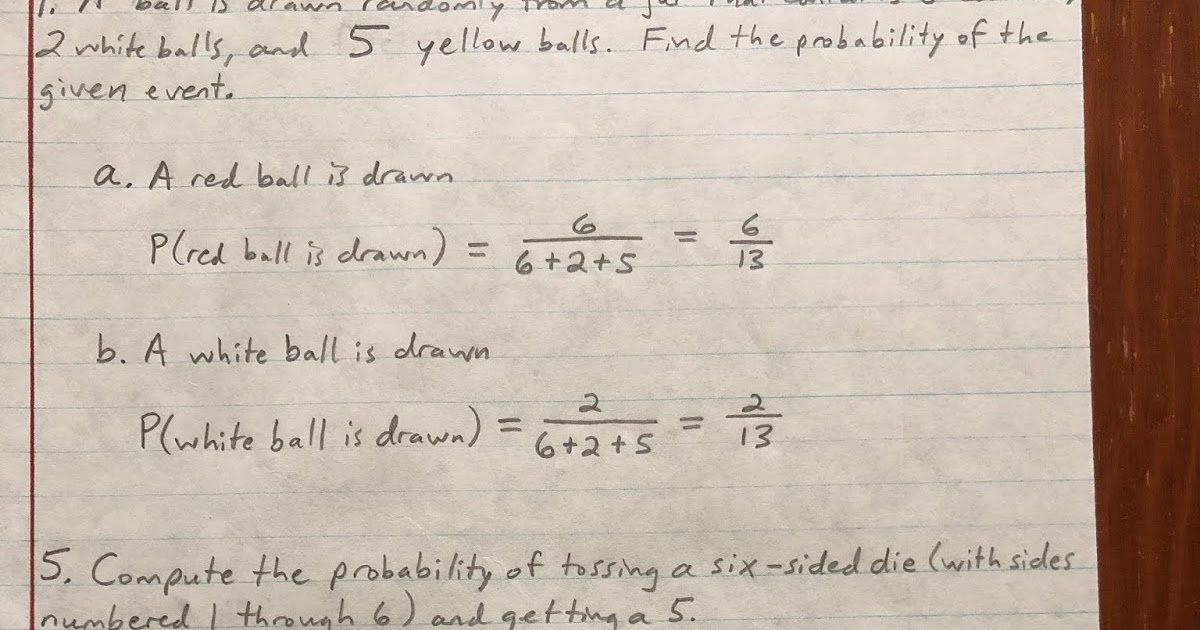 1. A ball is drawn randomly from a jar that contains
2 white balls, and 5 yellow balls. Find the probability of the
given event.
a. A red ball is drawn
P(red ball is drawn) = 6/(6+2+5) = 6/13
b. A white ball is drawn
P(white ball is drawn) = 2/(6+2+5) = 2/13
5. Compute the probability of tossing a six-sided die (with sides
numbered 1 through 6) and getting a 5.